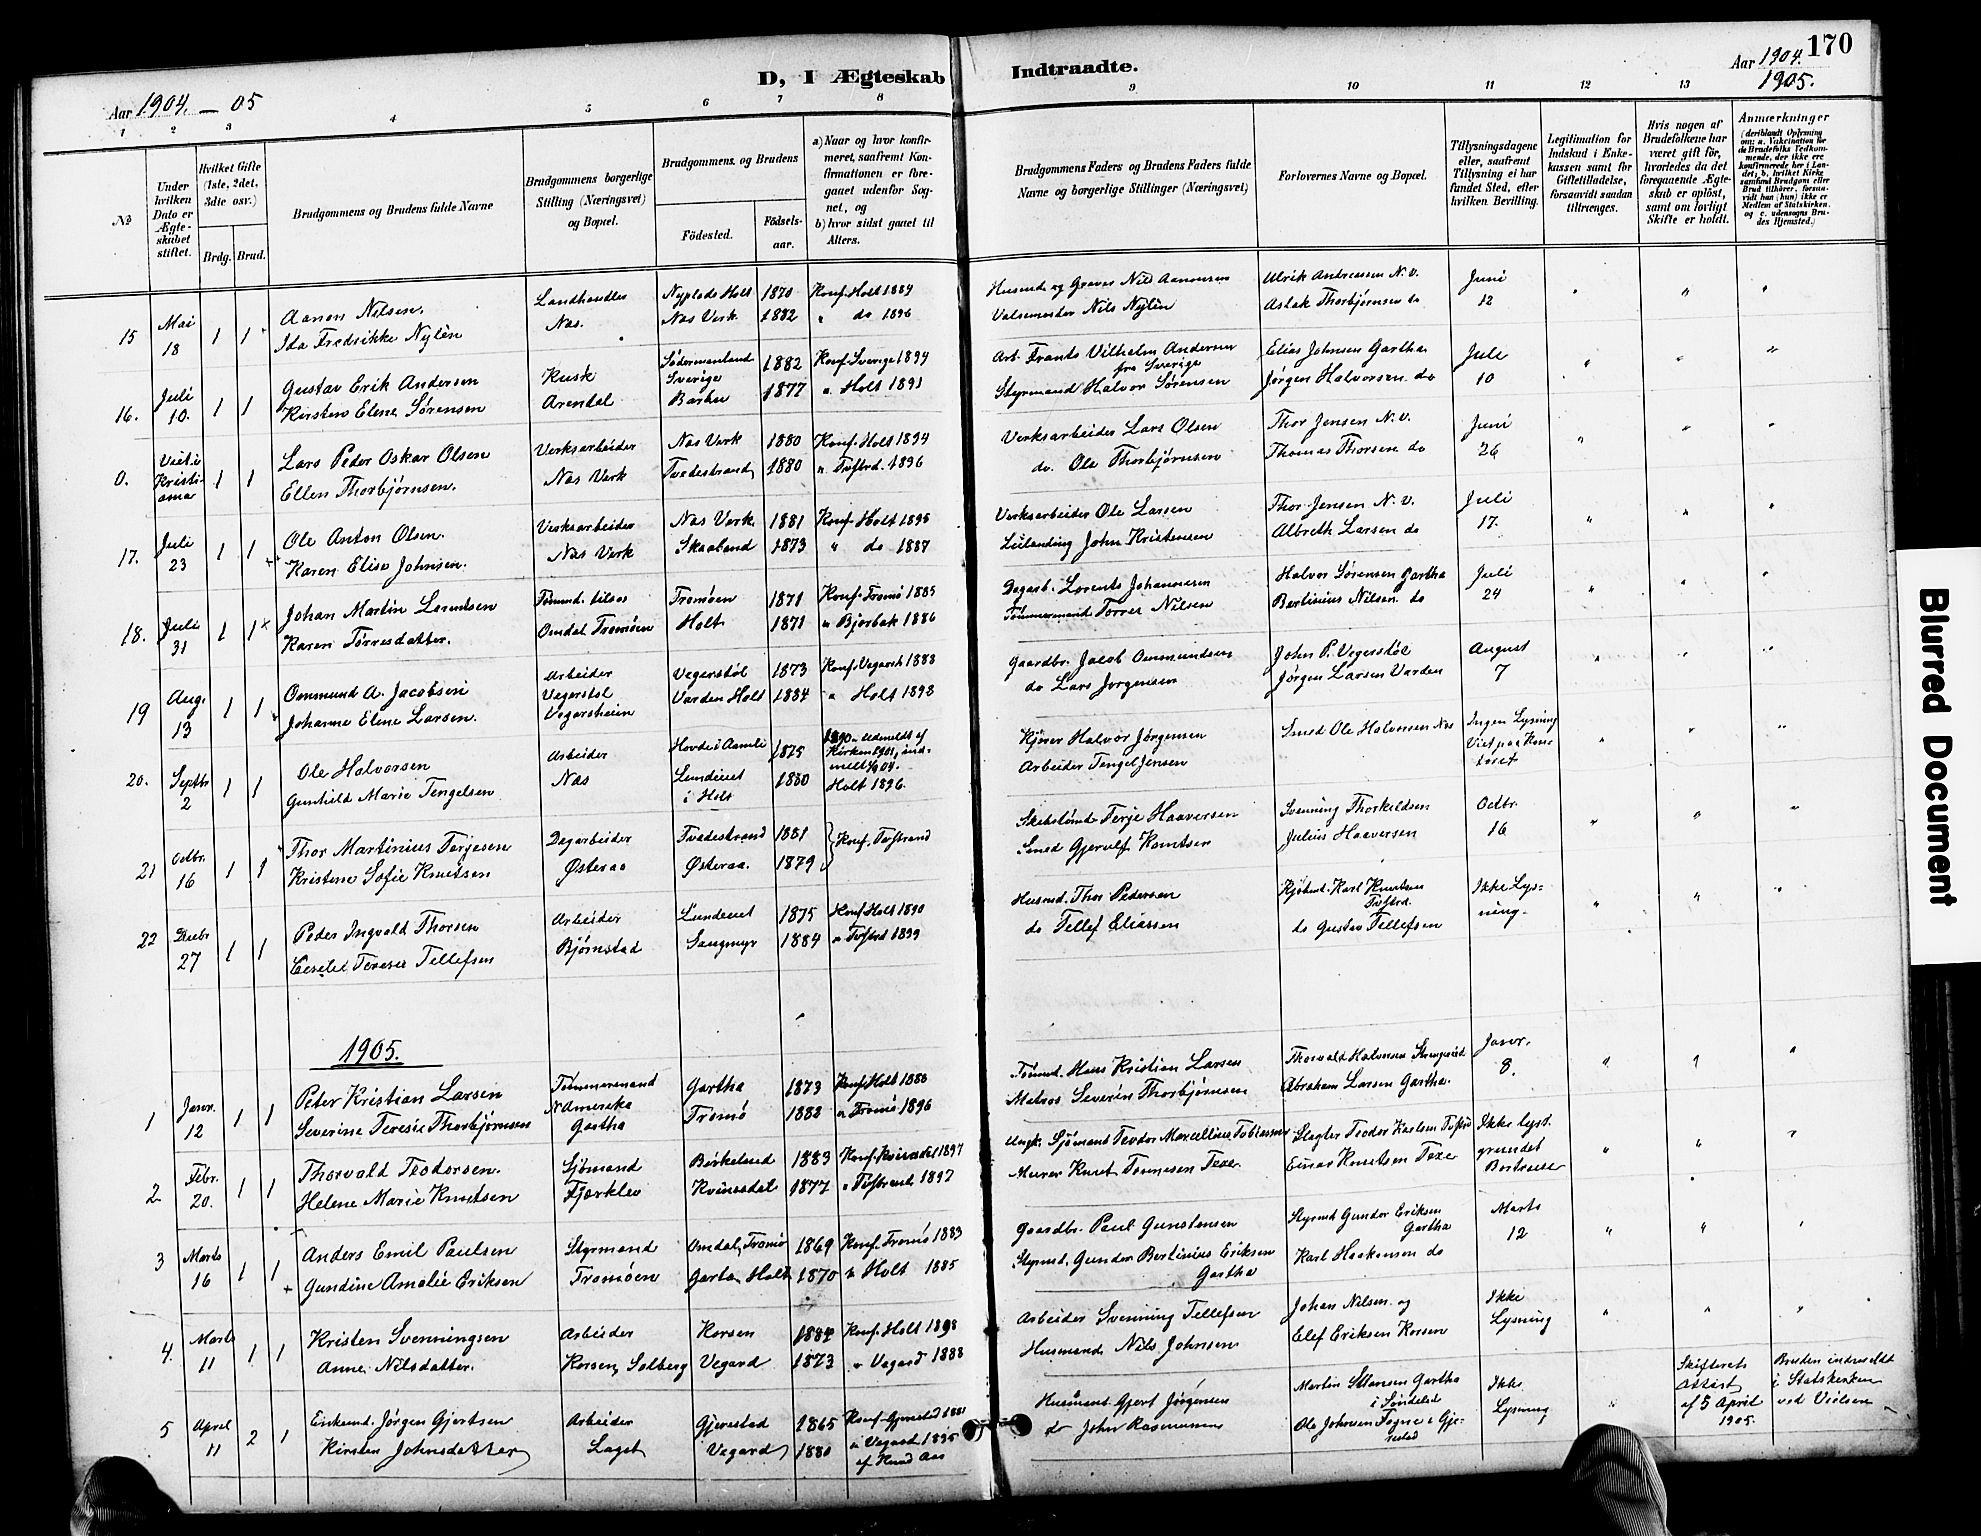 170
D, I Ægteskab Indtraadte.
Aar 1904. — 05
Aar 1904.
1905.
1 2 3 4 5 6 7 8 9 10 11 12 13
No
Under hvilken Dato er Ægteskabet stiftet.
Hvilket Gifte (1ste, 2det, 3die osv.)
Brdg. Brud.
Brudgommens og Brudens fulde Navne
Brudgommens borgerlige Stilling (Næringsvei) og Bopæl.
Brudgommens og Brudens
Fødested.
Fødsels-aar.
a) Naar og hvor konfirmeret, saafremt Konfirmationen er foregaaet udenfor Sognet, og
b) hvor sidst gaaet til Alters.
Brudgommens Faders og Brudens Faders fulde Navne og borgerlige Stillinger (Næringsvei)
Forlovernes Navne og Bopæl.
Tillysningsdagene eller, saafremt Tillysning ei har fundet Sted, efter hvilken Bevilling.
Legitimation for Indskud i Enkekassen samt for Giftetilladelse, forsaavidt saadan tiltrænges.
Hvis nogen af Brudefolkene har været gift før, hvorledes da det foregaaende Ægteskab er opløst, samt om lovligt Skifte er holdt.
Anmærkninger
15 Mai 18 1 1 Aanon Nilsen. Landhandler Nyplads Holt 1870 Konf. Holt 1884 Husmd. og Graver Nils Aanonsen Ulrik Andreassen N.v. Juni 12
Ida Fredrikke Nylèn Nas. Nas Verk. 1882 " do 1896 Valsemester Nils Nylèn Aslak Thorbjørnsen do
16. Juli 10. 1 1 Gustav Erik Andersen Kusk Södermanland Sverige 1882 Konf. Sverige 1894 Arb. Frants Vilhelm Andersen fra Sverige Elias Johnsen Gartha Juli 10
Kirsten Elene Sørensen Arendal Barbu 1877 " Holt 1891 Styrmand Halvor Sørensen Jörgen Halvorsen do
0. Viet i Kristiansa 1 1 Lars Peder Oskar Olsen Verksarbeider Nas Verk 1880 Konf. Holt 1894 Verksarbeider Lars Olsen Thor Jensen N.v. Juni 26
Ellen Thorbjørnsen. Nas Verk Tvedestrand 1880 " Tvstrd. 1896 do. Ole Thorbjørnsen Thomas Thorsen do
17. Juli 23 1 1 Ole Anton Olsen. Verksarbeider Nas Verk 1881 Konf. Holt 1895 Verksarbeider Ole Larsen Thor Jensen N.v. Juli 17.
Karen Elise Johnsen. Nas Verk Skaaland 1873 " do 1887 Leilending John Kristensen Albreth Larsen do
18. Juli 31 1 1 Johan Martin Lorentsen Tømmd. tilsøs Tromøen 1871 Konf. Tromø 1885 Dagarb. Lorents Johannesen Halvor Sørensen Gartha Juli 24
Karen Tørresdatter. Omdal Tromøen Holt 1871 " Bjorbak 1886 Tømmermand Torres Nilsen Bertinius Nilsen do
19 Aug. 13 1 1 Omsmund A. Jacobsen Arbeider Vegerstøl 1873 Konf. Vegarsh 1888 Gaardbr. Jacob Omsmundsen John P. Vegerstøl August 7
Johanne Elene Larsen. Vegerstøl Vegarsheien Varden Holt 1884 " Holt 1898 do Lars Jorgensen Jørgen Larsen Varden
20. Septbr 2 1 1 Ole Halvorsen Arbeider Hovde i Aamli 1875 1890. Udmeldt af Kirken 1901, indmeldt Kjører Halvor Jørgensen Smed Ole Halvorsen Nas Ingen Lysning Viet paa Kontoret
Gunhild Marie Tengelsen Nas Lundeiet i Holt 1880 Holt 1896. Arbeider Tengel Jensen
21 Octbr. 16 1 1 Thor Martinius Terjesen Dagarbeider Tvedestrand 1881 Konf. Tvstrand Skibstømd Terje Haaversen Svenning Thorkildsen Octbr. 16
Kristene Sofie Knutsen Østeraa Østeraa. 1879 Smed Gjerulf Knutsen Julius Haaversen
22 Decbr 27 1 1 Peder Ingvald Thorsen Arbeider Lundeiet 1875 Konf. Holt 1890 Husmd. Thor Pedersen Kjøbmd. Karl Knutsen Tvstrd. Ikke Lysning.
Teresie Tellefsen Bjørnstad Saugmyr 1884 " Tvstrd 1899 do Tellef Eliassen do Gustav Tellefsen
1905.
1 Janr. 12 1 1 Peter Kristian Larsen Tømmermand Gartha 1873 Konf. Holt 1888 Tømmd. Hans Kristian Larsen Thorvald Halvorsen Janr. 8.
Severine Teresie Thorbjørnsen N. Amerika Gartha Tromø 1882 " Tromø 1896 Matros Severin Thorbjørnsen Abraham Larsen Gartha.
2 Febr. 20. 1 1 Thorvald Teodorsen. Sjømand Birkeland 1883 Konf. Kvinesdal 1897 Ungk. Sjømand Teodor Marcellius Tobiassen Slagter Teodor Karlsen Tvstrd Ikke lyst. grundet Bortreise
Helene Marie Knutsen Fjærklev Kvinesdal 1877 " Tvstrand 1892 Murer Knut Tønnesen Texe Einar Knutsen Texe
3 Marts 16 1 1 Anders Emil Paulsen Styrmand Omdal, Tromø 1869 Konf. Tromø 1883 Gaardbr. Paul Gunstensen Styrmd Gunder Eriksen Gartha Marts 12
Gundine Amalie Eriksen Tromøen Garta, Holt 1870 " Holt 1885 Styrmd. Gunder Bertinius Eriksen Gartha Karl Haakensen do
4. Marts 11 1 1 Kristen Svenningsen Arbeider Korsen 1884 Konf. Holt 1898 Arbeider Svenning Tellefsen Johan Nilsen og Ikke Lysning
Anne Nilsdatter. Korsen, Solberg Vegard 1873 " Vegard 1888 Husmand Nils Johnsen Olef Eriksen Korsen
5 April 11 2 1 Enkemd. Jørgen Gjertsen Arbeider Gjerestad 1865 Konf. Gjerestad 1881 Husmand Gjert Jørgensen Martin Gartha i Søndeled Ikke Lysning Skifterets Attest af 5 April 1905. Bruden indmeldt i Statskirken ved Vielsen
Kirsten Johnsdatter Laget Vegard 1880 " Vegard 1895 af Knud Aas do John Rasmussen Ole Johnsen Fogne i Gjerestad
Blurred Document